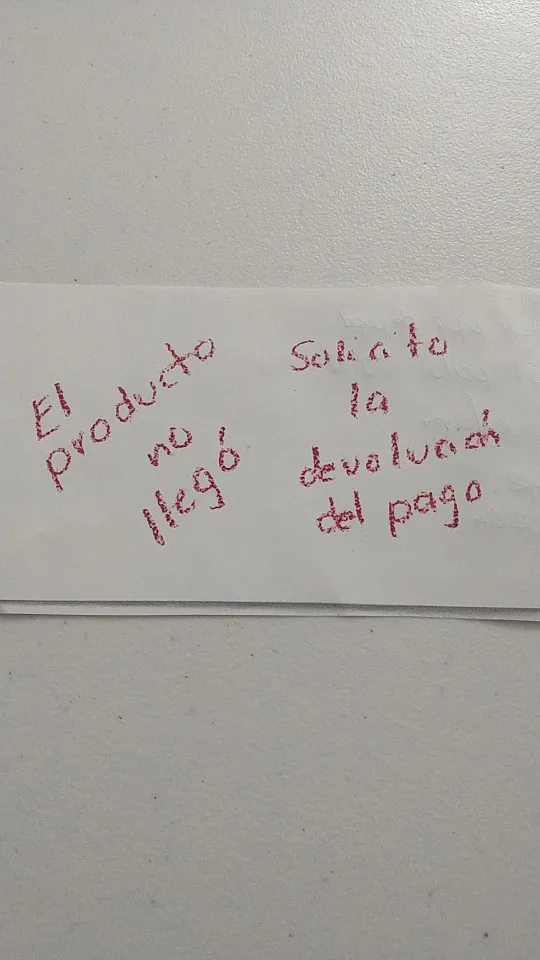 El
producto
no
llegó
Solicito
la
devolución
del pago